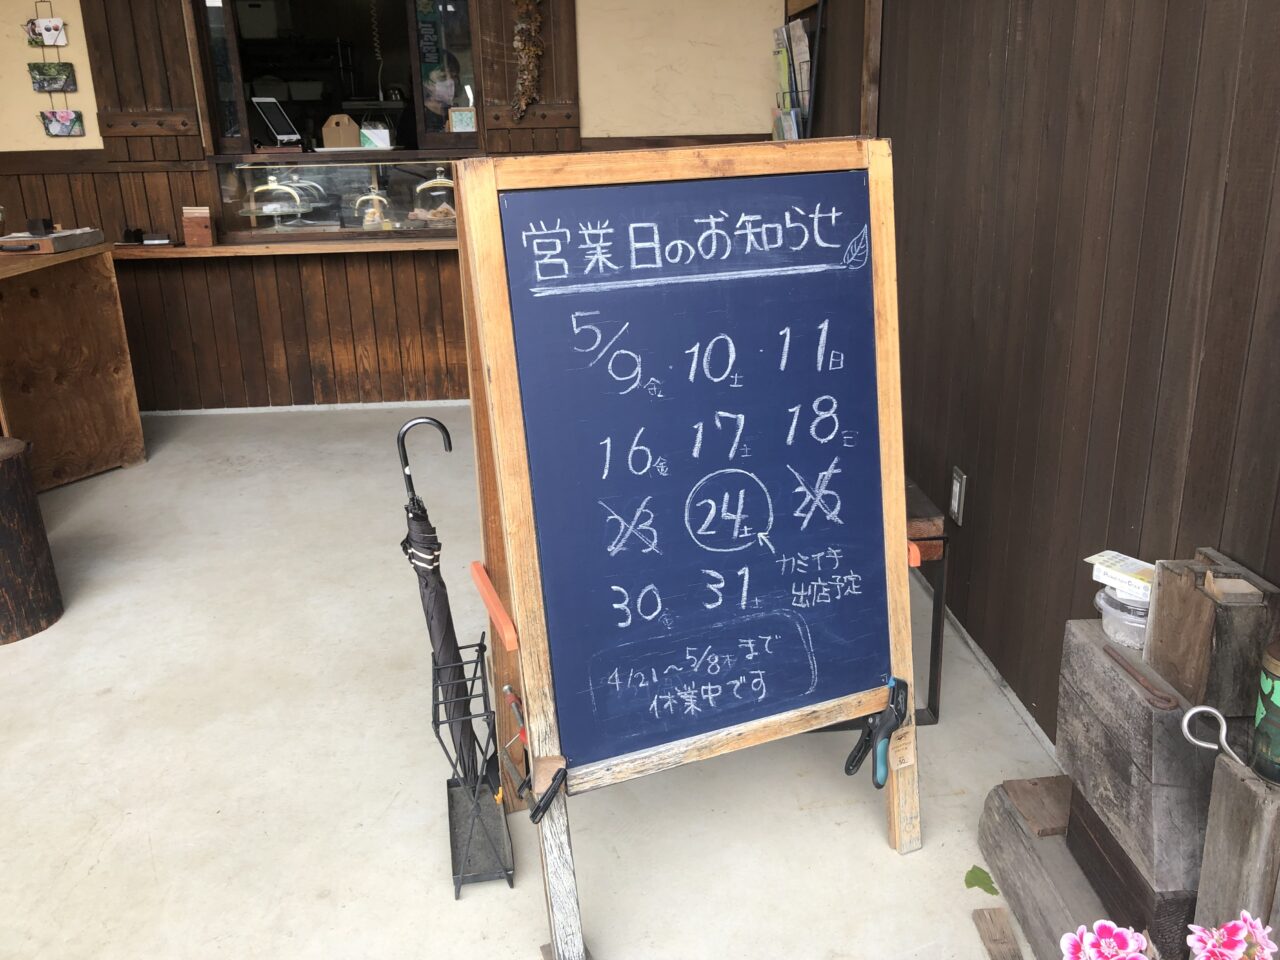 営業日のお知らせ
5/9金・10土・11日
16金 17土 18日
23 24土 25
カミイチ
出店予定
30金 31土
4/21～5/8木まで
休業中です